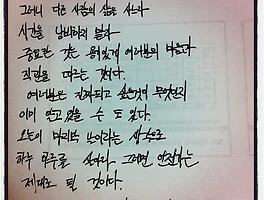 그러니 다른 사람의 삶을 사느라
시간을 낭비하지 말라
중요한 것은 용기있게 여러분의 마음과
직관을 따르는 것이다.
여러분은 진정되고 싶은것이 무엇인지
이미 알고있을 수 도 있다.
오늘이 마지막 날이라는 생각으로
하루 하루를 살아라. 그러면 언젠가는
제대로 될 것이다.